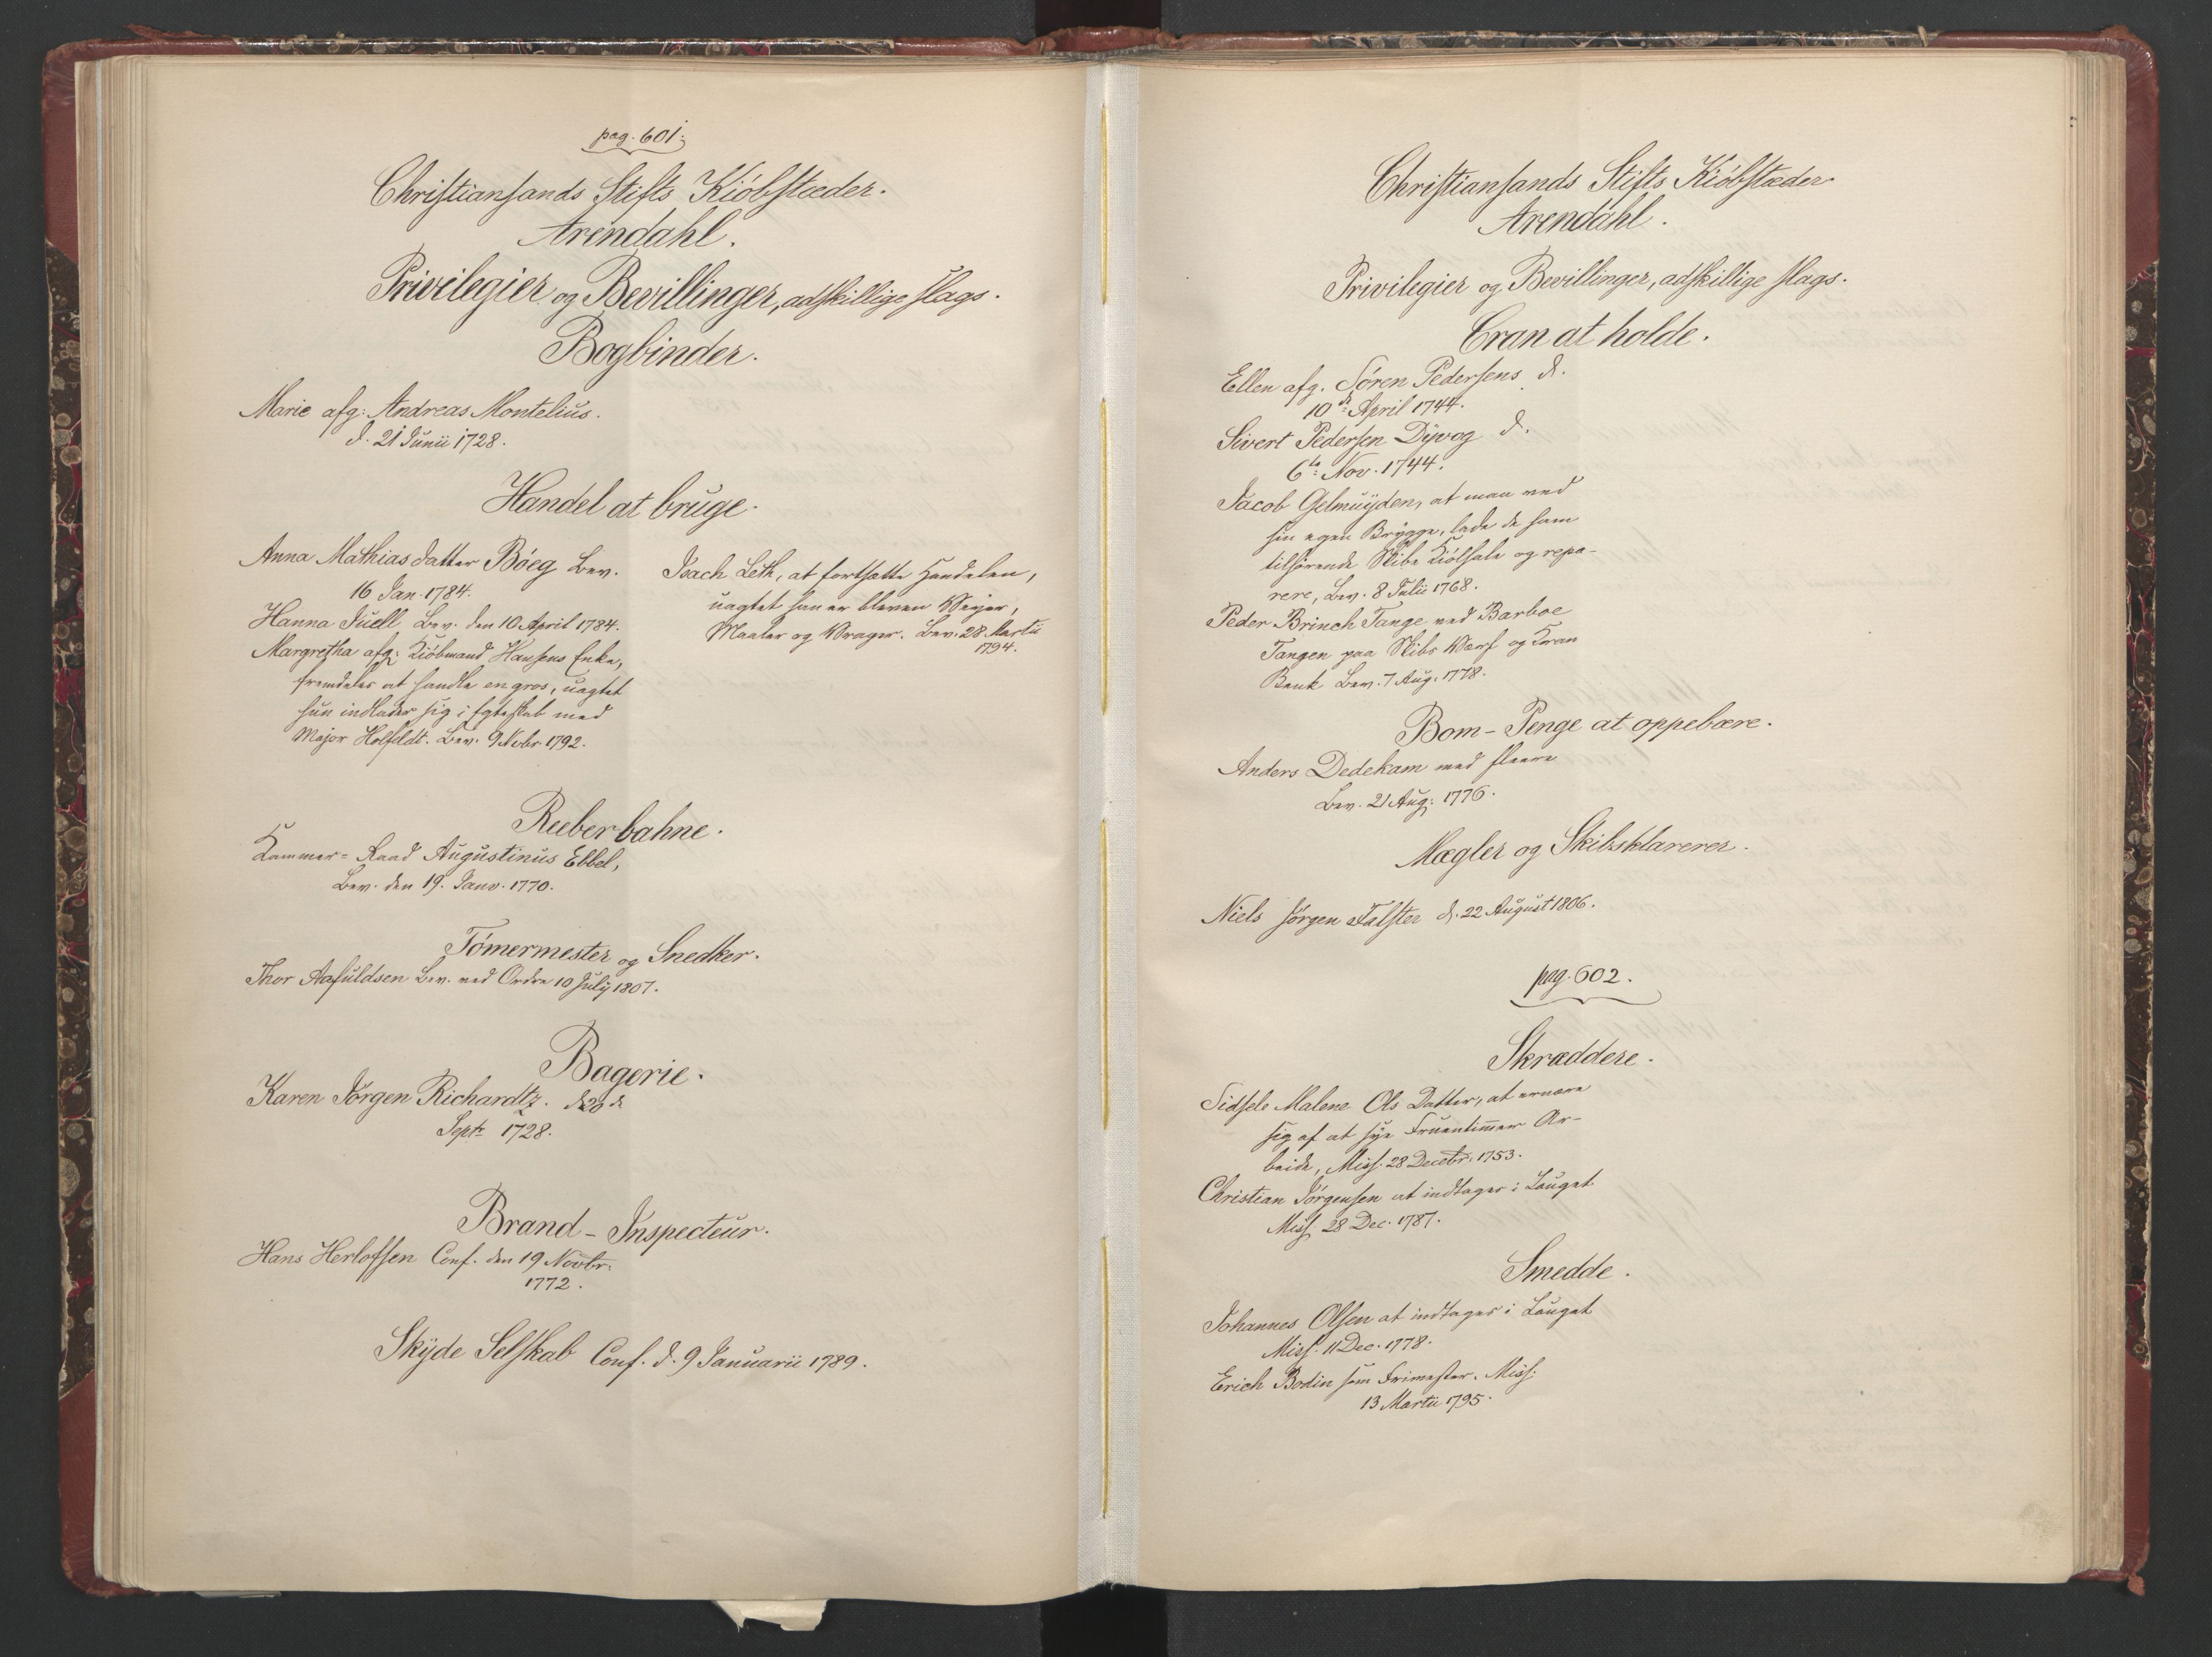 pag. 601.
Christiansands Stifts Kiöbstæder.
Arendahl.
Privilegier og Bevillinger, adskillige slags.
Bogbinder.
Marie afg: Andreas Montelius.
d. 21 Junii 1728.
Handel at bruge.
Anna Mathias datter Böeg Bev.
16 Jan. 1784.
Hanna Juell Bev. den 10 April 1784.
Margretha afg: Kiöbmand Hansens Enke,
fremdeles at handle en gros, uagtet
hun indlader sig i Egteskab med
Major Holfeldt. Bev. 9 Nvbr 1792.
Isach Leth, at fortsætte Handelen,
uagtet han er bleven Veyer,
Maaler og Vrager. Bev. 28 Martii
1794.
Reeberbahne.
Kammer-Raad Augustinus Ebbel,
Bev. den 19. Janv. 1770.
Tömermester og Snedker.
Thor Aafuldsen Bev. ved Ordre 10 July 1807.
Bagerie.
Karen Jörgen Richardtz. d. 20 de
Septr 1728.
Brand-Inspecteur.
Hans Herlofsen Conf. den 19 Novbr.
1772.
Skyde Selskab Conf. d. 9 Januarii 1789.
Christiansands Stifts Kiöbstæder
Arendahl.
Privilegier og Bevillinger, adskillige slags.
Cran at holde.
Ellen afg. Sören Pedersens d.
10de April 1744.
Sivert Pedersen Dyvog d.
6te Nov. 1744.
Jacob Gelmuyden, at man ved
sin egen Brygge, lade de ham
tilhörende Skibe Kiölhale og repa-
rere, Bev. 8 Julii 1768.
Peder Brinch Tange ved Barboe
Tangen paa Skibs Værf og Kran
Bank Bev. 7 Aug. 1778.
Bom-Penge at oppebære.
Anders Dedekam med fleere
Bev. 21 Aug: 1776.
Mægler og Skibsklarerer.
Niels Jörgen Falster d. 22 August 1806.
pag. 602.
Skræddere.
Sidsele Malene Ols Datter, at ernære
sig af at sye Fruentimmer Ar-
beide, Miss. 28 Decebr. 1753.
Christian Jörgensen at indtages i Lauget
Miss. 28 Dec. 1787.
Smedde.
Johannes Olsen at indtages i Lauget
Miss. 11 Dec. 1778.
Erich Bodin som Frimester. Miss.
13 Martii 1795.